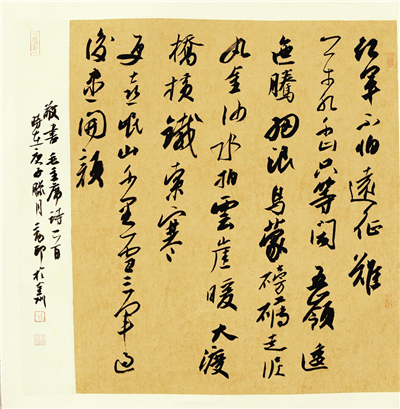 紅軍不怕遠征難
萬水千山只等閒五嶺逶
迤騰細浪烏蒙磅礴走泥
丸金沙水拍雲崖暖大渡
橋橫鐵索寒
更喜岷山千里雪三軍過
後盡開顏
敬書毛主席詩一首
時在庚子臘月